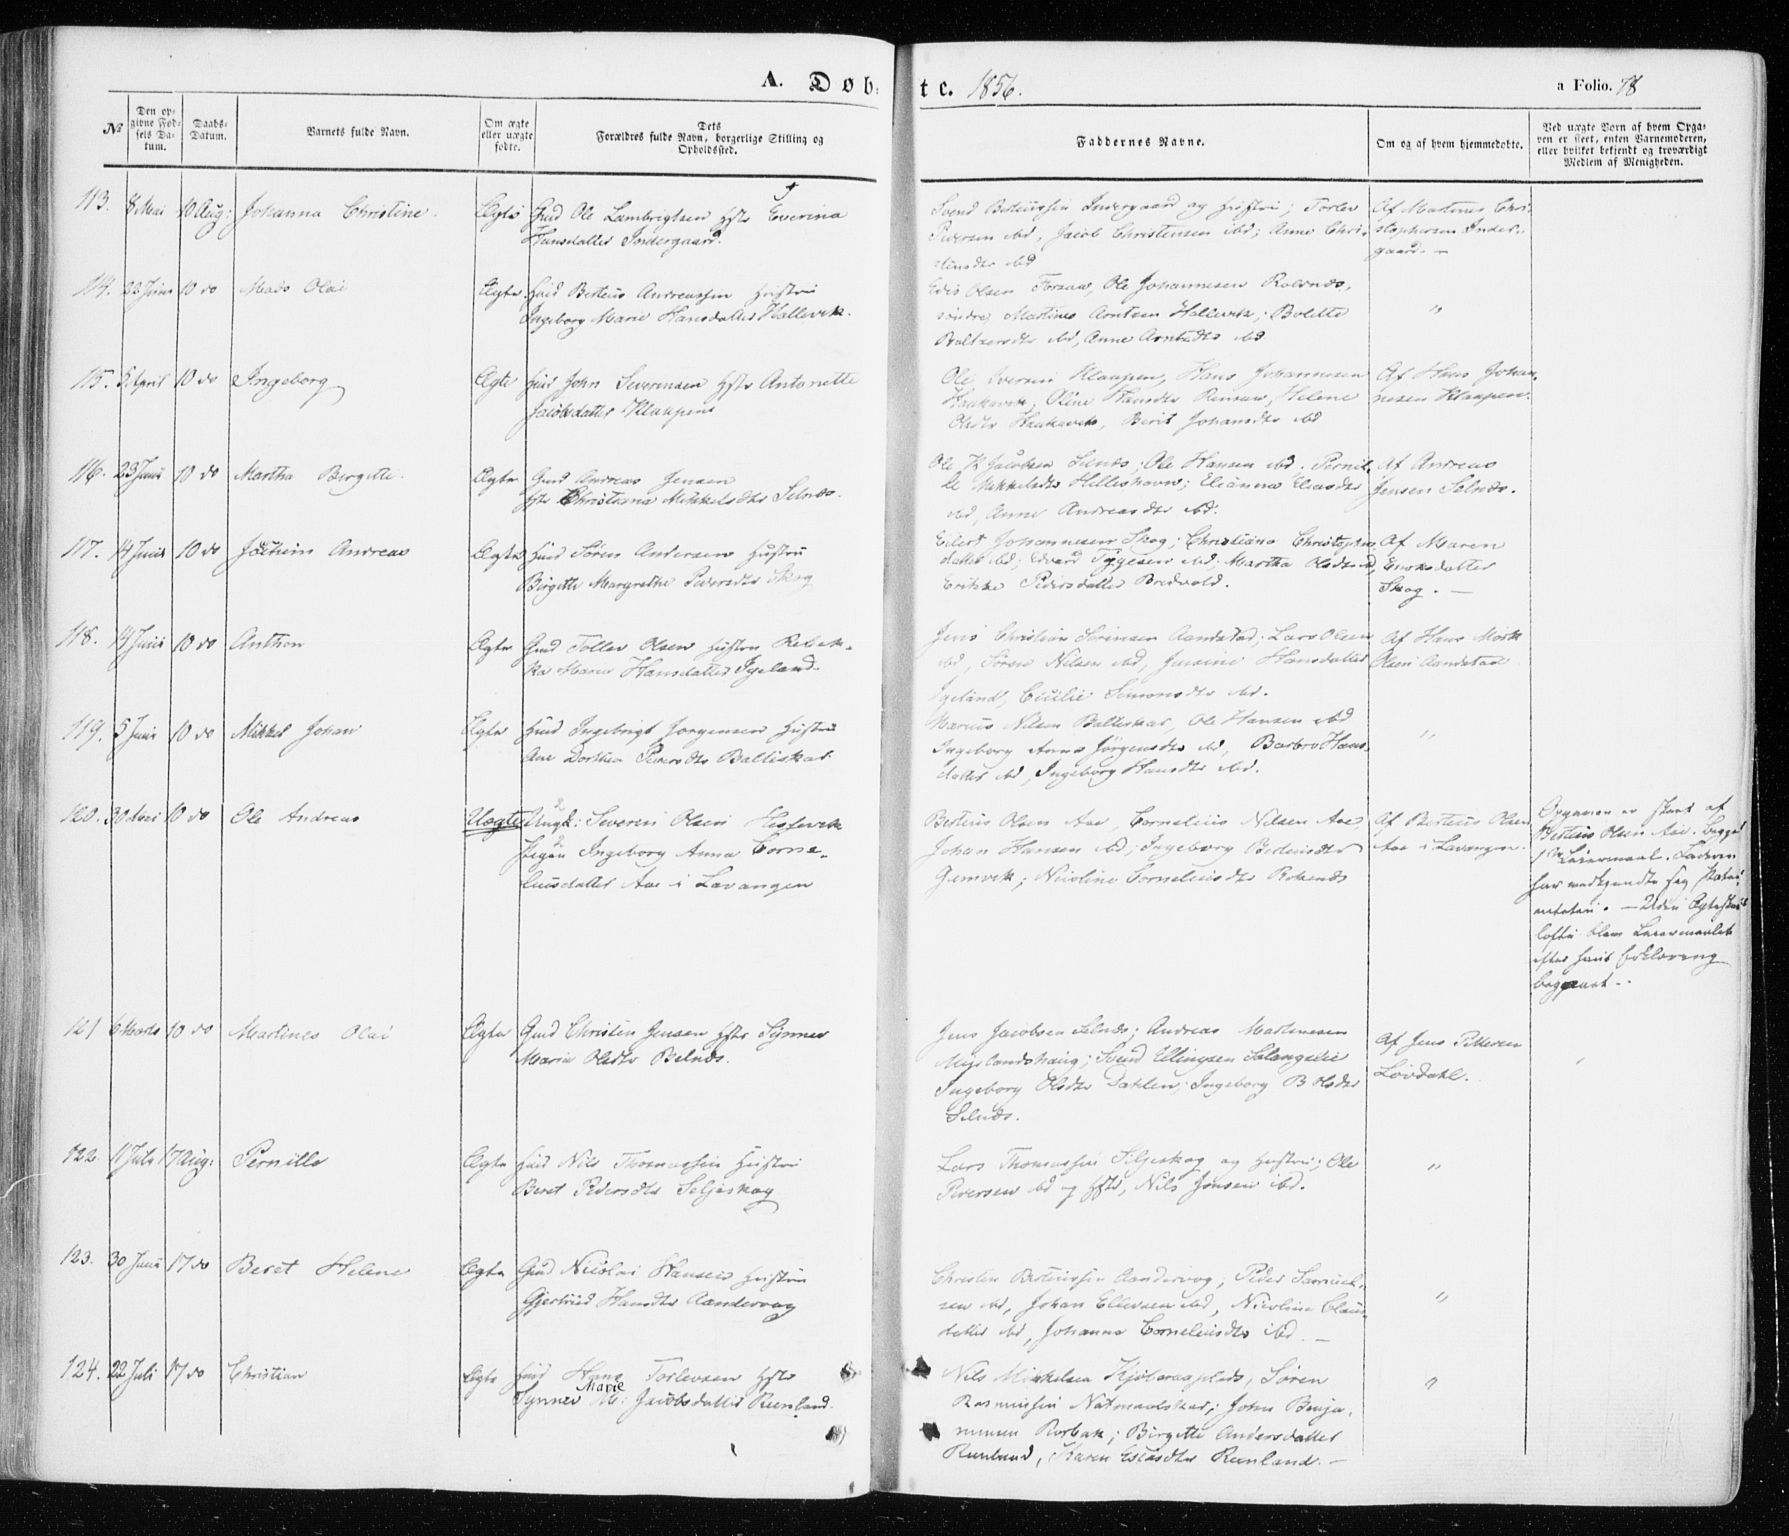 A. Døb- te. 1856. a Folio. 78
No
Den op-
givne Fød-
sels Da-
tum.
Daabs-
Datum.
Varnets fulde Navn.
Om ægte
eller uægte
fødte.
Dets
Forældres fulde Navn, borgerlige Stilling og
Opholdssted.
Faddernes Navne.
Om og af hvem hjemmedøbte.
Ved uægte Born af hvem Opga-
ven er skeet, enten Barnemoderen,
eller hvilket bekjendt og troværdigt
Medlem af Menigheden.
113. 8 Mai 10 Aug: Johanna Christine. Ægte Gmd Ole Lambrigtsen Hstr Everina
Hansdatter Indergaard.
Svend Berteussen Indergaard og Hustru; Torlev
Pedersen ibd, Jacob Christensen ibd; Anne Chri-
stensdtr ibd
Af Martines Chri-
stophersen Inder-
gaard. -
114. 22 Juni 10 do Mads Olai Ægte Huusmd Berteus Andreassen Hustru
Ingeborg Marie Hansdatter Hallevik.
Edis Olsen Forsaa, Ole Johannesen Rolvnæs,
søndre, Martines Arntsen Hallevik; Bolette
Baltzersdtr ibd, Anne Arntsdtr ibd
"
115. 5 April 10 do Ingeborg Ægte Huusmd John Severinsen Hstr Antonette
Jacobsdatter Klaapen
Ole Iversen Klaapen, Hans Johannesen
Haukevik, Oline Hansdtr Rensaa, Helene
Olsdtr Haukevik, Berit Johansdtr ibd
Af Hans Johan-
nesen Klaapen.
116. 23 Juni 10 do Martha Birgitte. Ægte Gmd Andreas Jensen
Hstr Christiana Mikkelsdtr Selnæs.
Ole K Jacobsen Selnæs; Ole Hansen ibd. Pernil-
le Mikkelsdtr Helleshavn; Elianna Eliasdtr
ibd, Anne Andreasdtr ibd.
Af Andreas
Jensen Selnæs.
117. 14 Juni 10 do Jochim Andreas Ægte Huusmd Søren Andersen Hustru
Birgitte Margrethe Pedersdtr Skog
Edert Johannesen Skog; Christiana Christophers-
datter ibd; Edvard Tygesen ibd. Martha Olsdtr ibd,
Erikke Pedersdatter Bredvold.
Af Maren
Enoksdatter
Skog. -
118. 14 Juni 10 do Anthon Ægte Gmd Tollev Olsen Hustru Rebek-
ka Marie Hansdatter Igeland.
Jens Christian Sørensen Aandstad; Lars Olsen
ibd, Søren Nilsen ibd, Jensine Hansdatter
Igeland, Cicilie Simonsdtr ibd.
Af Hans Mørk
Olsen Aandstad
119. 5 Juni 10 do Mikkel Johan Ægte Huusmd Ingebrigt Jørgensen Hustru
Ane Dorthea Pedersdtr Balteskar
Marius Nilsen Balteskar, Ole Hansen ibd
Ingeborg Anna Jørgensdtr ibd, Barbro Hans-
datter ibd, Ingeborg Hansdtr ibd.
"
120. 30 Mai 10 do Ole Andreas Uægte Ungk: Severin Olsen Hessevik
Pigen Ingeborg Anna Corne-
liusdatter Aae i Lavangen
Berteus Olsen Aae, Cornelius Nilsen Aae,
Johan Hansen ibd; Ingeborg Berteusdtr
Gamvik; Nicoline Corneliusdtr Rolvnæs
Af Berteus Olsen
Aae i Lavangen.
Opgaven er skeet af
Berteus Olsen Aae. Begges
1ste Leiermaal. Faderen
har vedkjendt sig Pater-
niteten. - Uden Ægteskabs
løfte blev Leiermaalet
efter hans Erklæring
begaaet. -
121 6 Marts 10 do Martines Olai Ægte Gmd Christen Jensen Hstr Synnev
Maria Olsdtr Belnæs.
Jens Jacobsen Selnæs; Andreas Martinesen
Myrlandshaug; Svend Ellingsen Salangslie
Ingeborg Olsdtr Dahlen; Ingeborg B Olsdtr
Selnæs.
Af Jens Pettersen
Løvdahl.
122. 11 July 17 Aug: Pernille Ægte Huusmd Nils Thomassen Hustru
Beret Pedersdtr Seljeskog
Lars Thomassen Seljeskog og Hustru; Ole
Pedersen ibd og Hstr, Nils Jonsen ibd.
"
123. 30 Juni 17 do Beret Helene Ægte Gmd Nicolai Hansen Hustru
Gjertrud Hansdtr Aandervag
Christen Berteussen Aandervag; Peder Samuel-
sen ibd, Johan Ellevsen ibd, Nicoline Claus-
datter ibd, Johanna Corneliusdtr ibd. -
"
124. 22 Juli 17 do Christian Ægte Huusmd Hans Torlevsen Hstr
Marie
Synnev M: Jacobsdatter Reenland.
Nils Mikkelsen Kjøbmaaplads, Søren
Rasmussen Natmaalskar; John Benja-
minsen Rorbak; Birgitte Andersdatter
Reenland, Karen Esaiasdtr Reenland. -
"